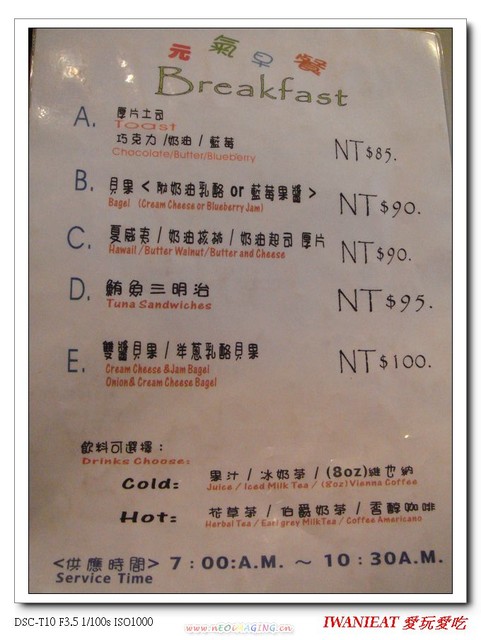 元氣早餐
Breakfast
A. 厚片土司
Toast
巧克力/奶油/藍莓 NT$85.
Chocolate/Butter/Blueberry
B. 貝果<附奶油乳酪 or 藍莓果醬> NT$90.
Bagel (Cream Cheese or Blueberry Jam)
C. 夏威夷/奶油核桃/奶油起司 厚片 NT$90.
Hawaii/Butter Walnut/Butter and Cheese
D. 鮪魚三明治 NT$95.
Tuna Sandwiches
E. 雙醬貝果/洋蔥乳酪貝果 NT$100.
Cream Cheese &Jam Bagel
Onion& Cream Cheese Bagel
飲料可選擇：
Drinks Choose:
Cold: 果汁/冰奶茶/(8oz)維也納
Juice/Iced Milk Tea/(8oz)Vianna Coffee
Hot: 花草茶/伯爵奶茶/香醇咖啡
Herbal Tea/Earl grey MilkTea/Coffee Americano
<供應時間> 7:00:A.M. ~ 10:30A.M.
Service Time
DSC-T10 F3.5 1/100s ISO1000
IWANIEAT 愛玩愛吃